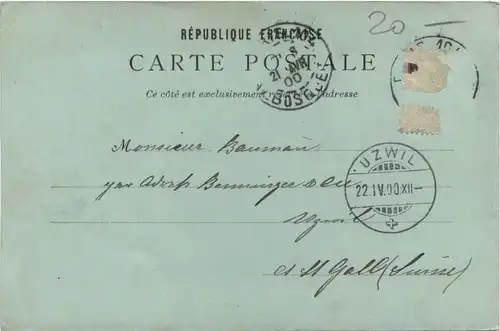 20 -
RÉPUBLIQUE FRANÇAISE
CARTE POSTALE
Ce côté est exclusivement réservé à l'adresse
21 AVR
00
BOSQUET
UZWIL
22.IV.00.XII-
Monsieur Baumann
par Adolph Benninger & Cie
Uzwil
ct St Gall (Suisse)